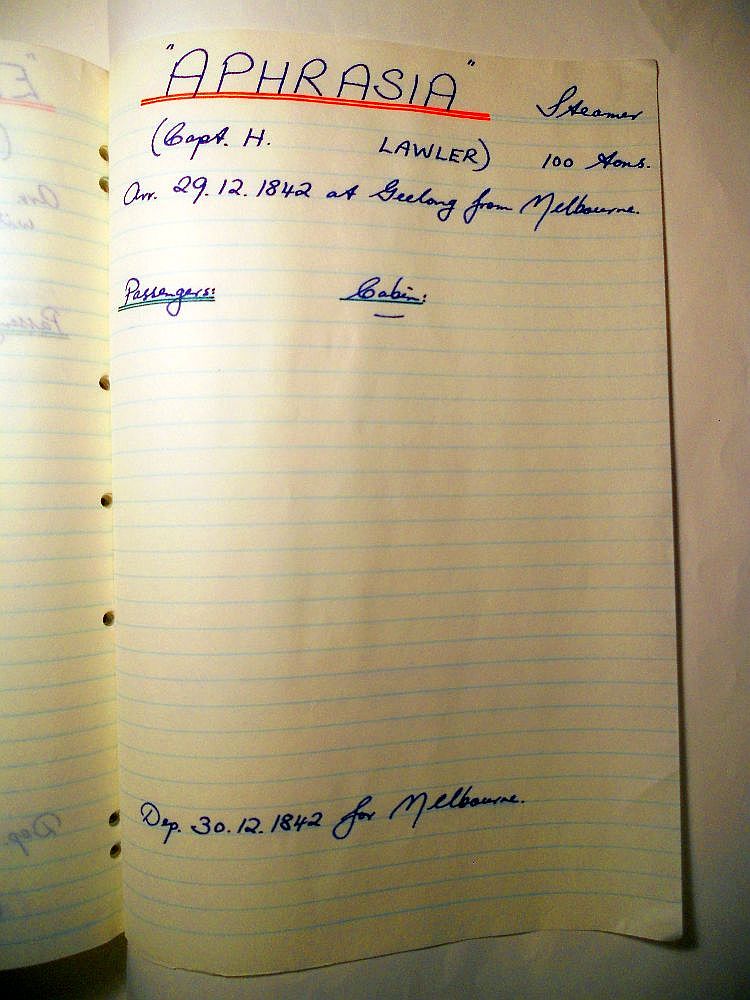 "APHRASIA" Steamer
(Capt. H. LAWLER) 100 tons.
Arr. 29.12.1842 at Geelong from Melbourne.
Passengers: Cabin:
—
Dep. 30.12.1842 for Melbourne.